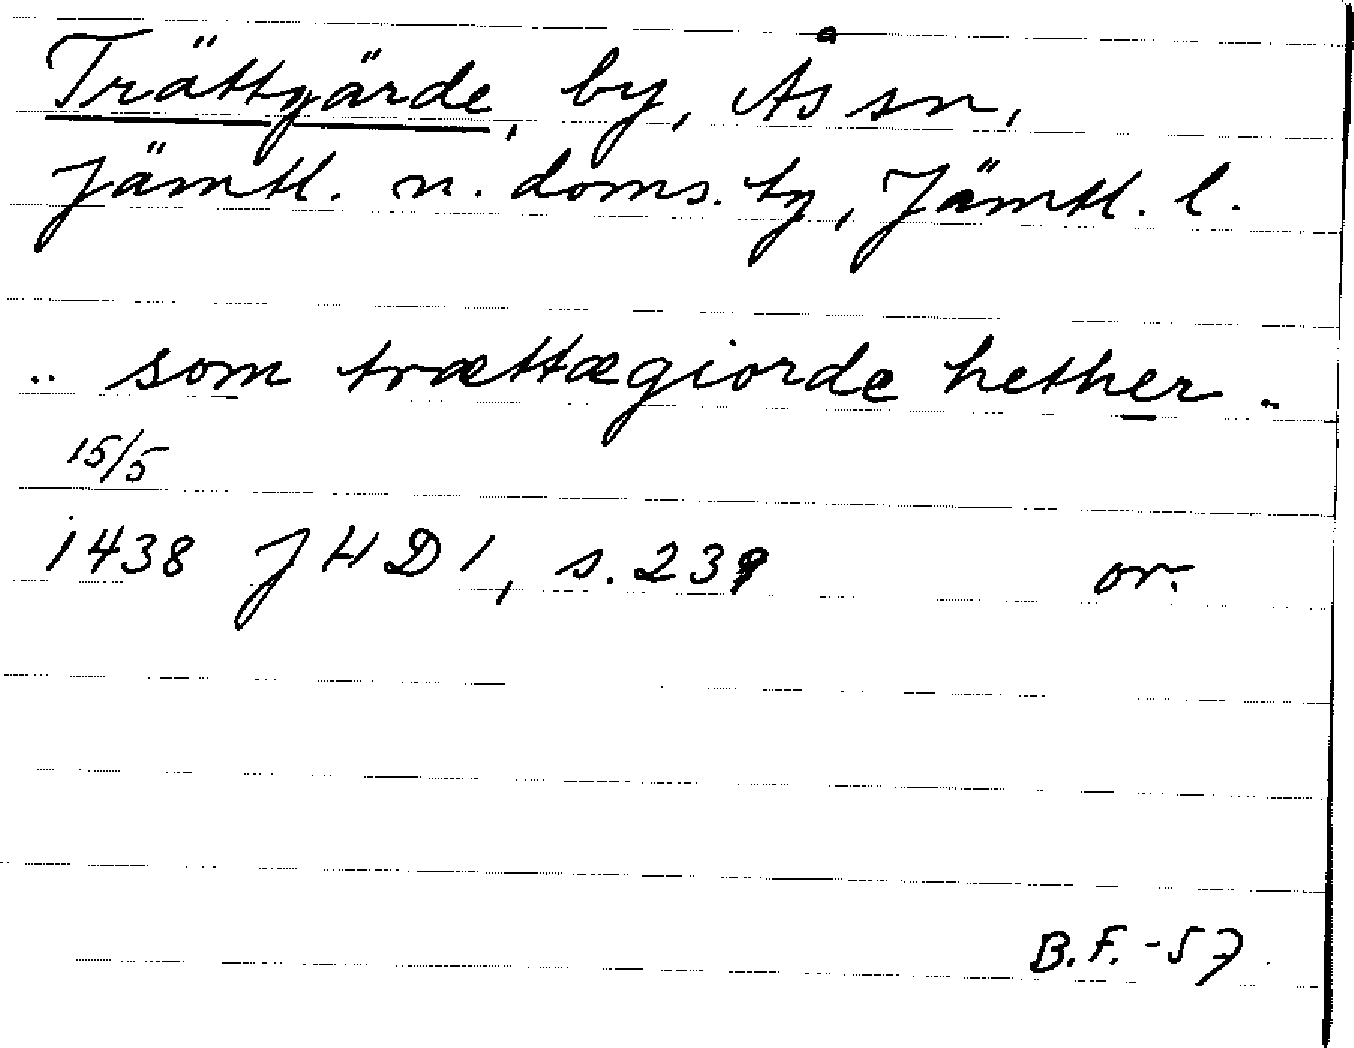 Trättgärde, by, Ås sn,
Jämtl. n. doms. tg, Jämtl. l.
.. som trættægiorde hether ..
15/5
1438 JHD 1, s. 239 or.
B.F. -57